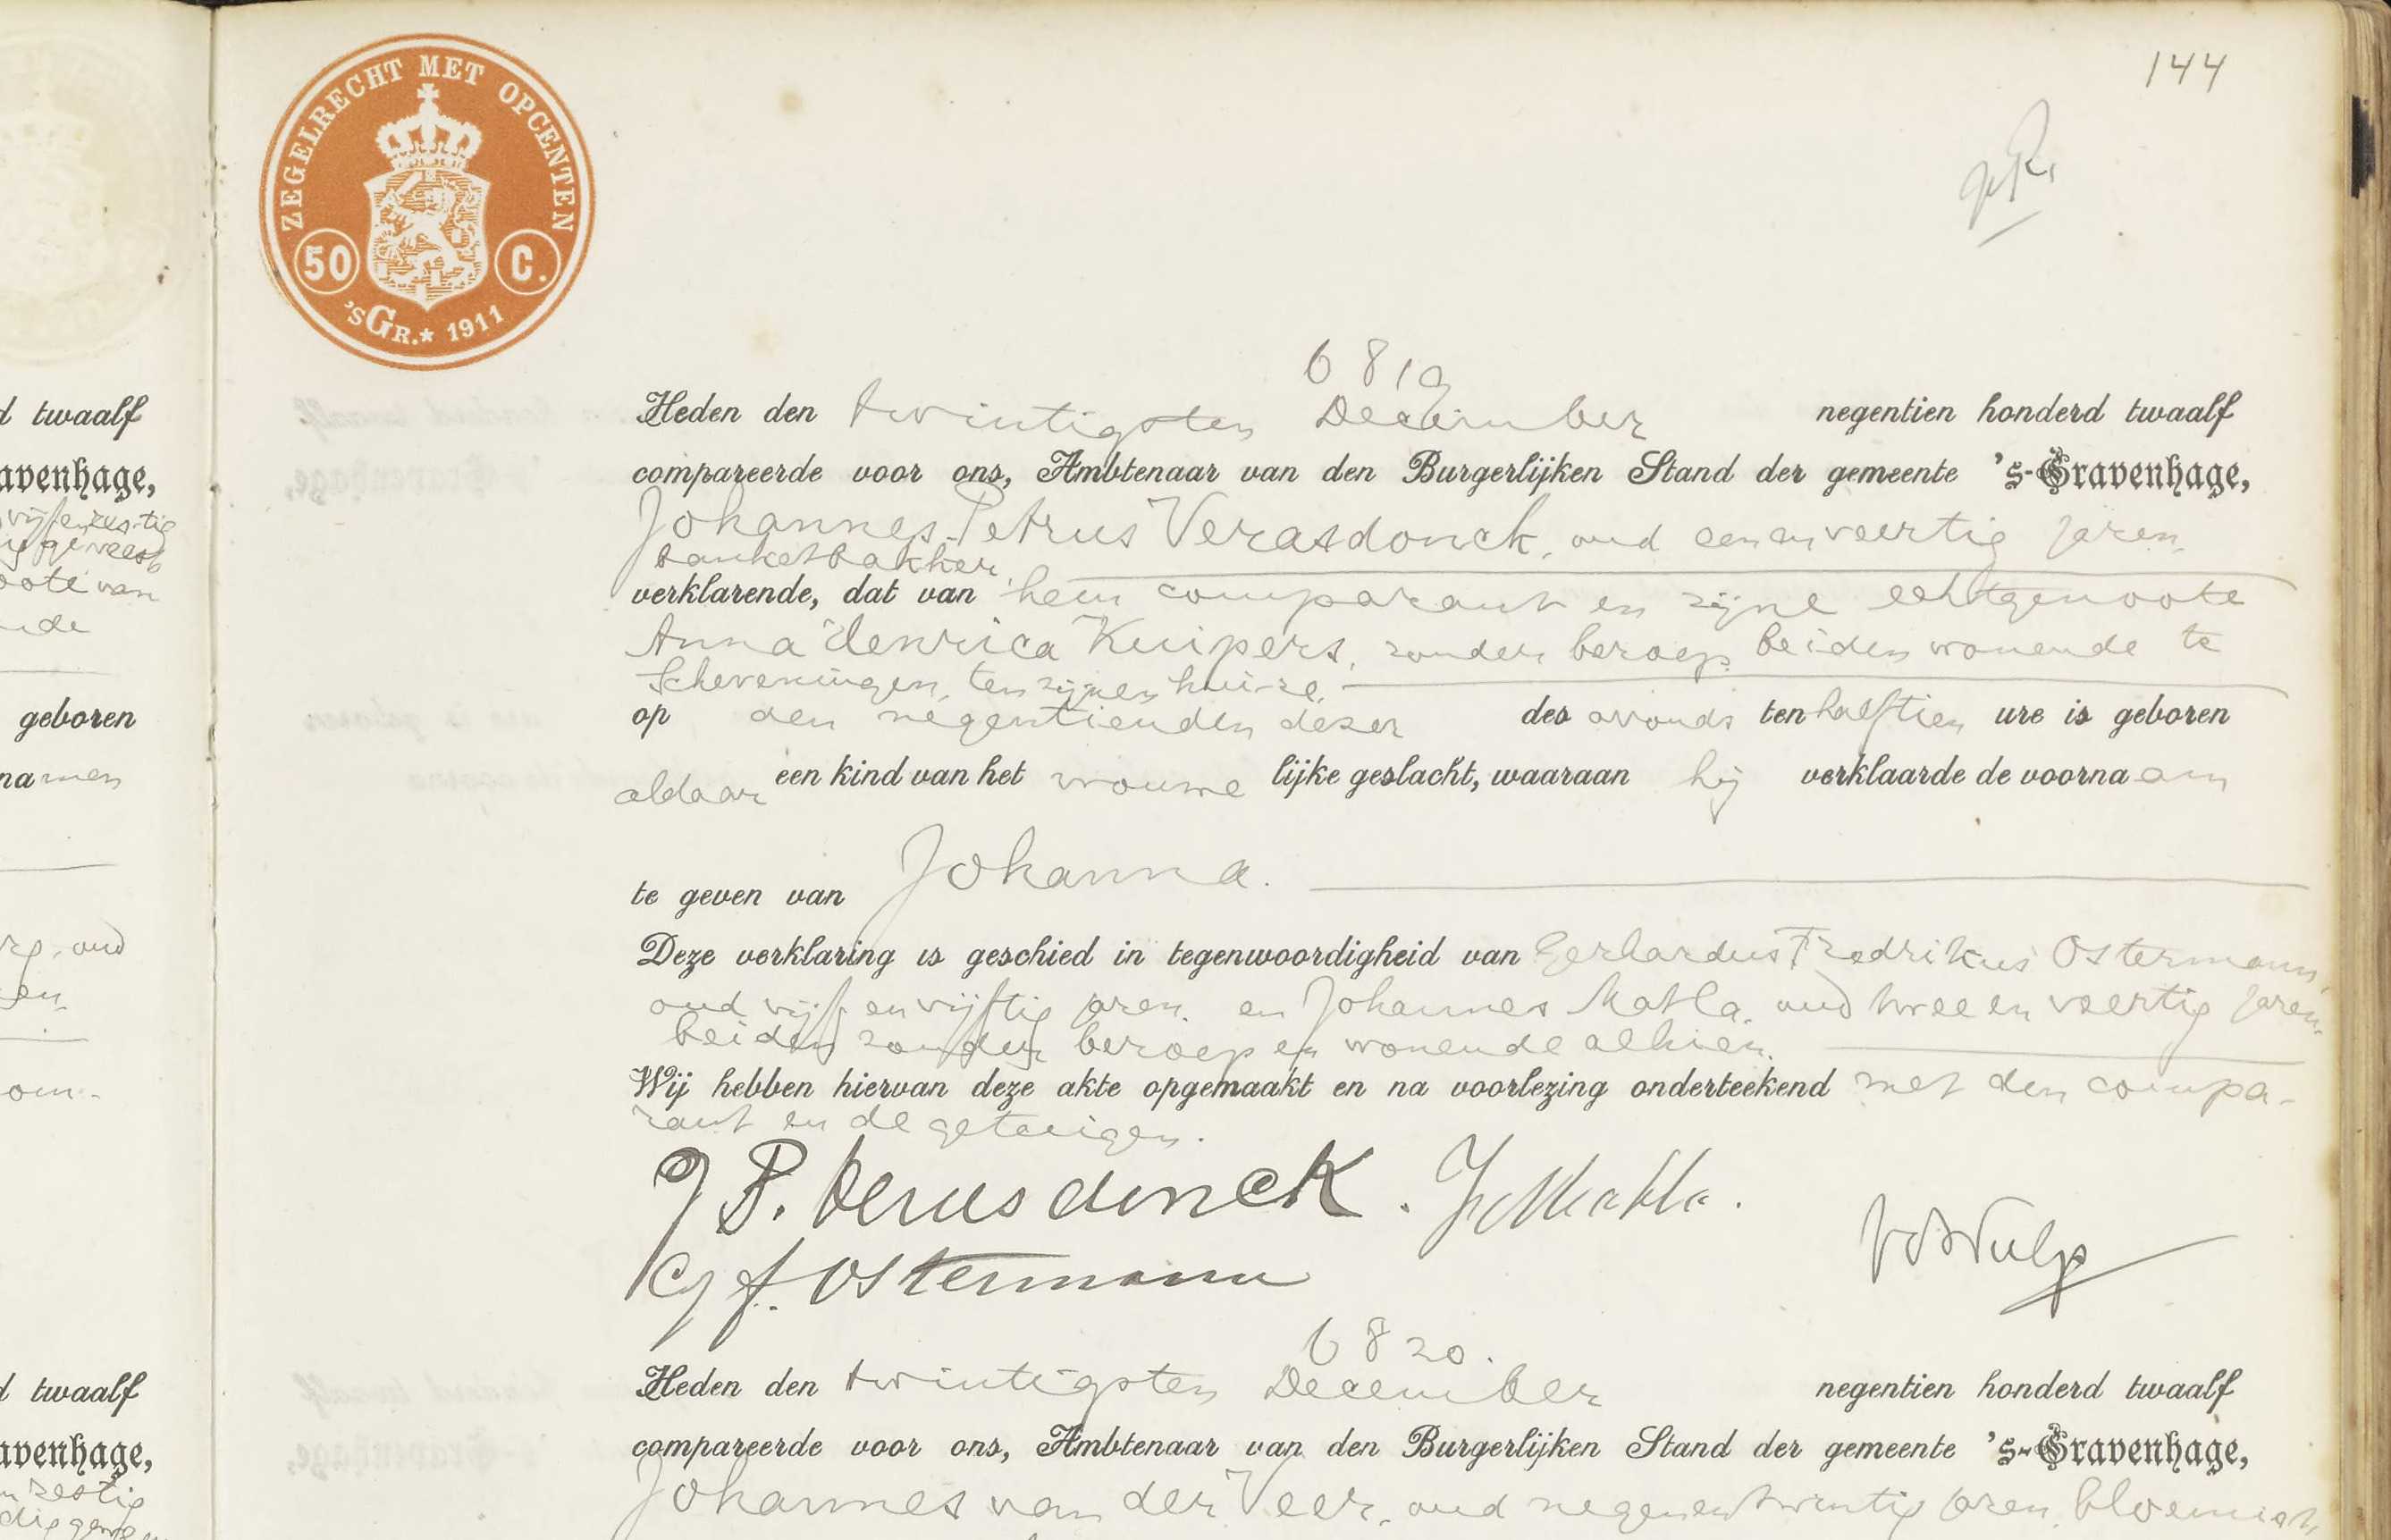 144
ZEGELRECHT MET OPCENTEN
50 C.
'S GR.* 1911
6819
Heden den twintigsten December negentien honderd twaalf
compareerde voor ons, Ambtenaar van den Burgerlijken Stand der gemeente 's-Gravenhage,
Johannes Petrus Verasdonck, oud eenenveertig jaren,
banketbakker,
verklarende, dat van hem comparant en zijne echtgenoote
Anna Henrica Kuipers, zonder beroep, beiden wonende te
Scheveningen, ten zijnen huize,
op den negentienden dezer des avonds ten halftien ure is geboren
aldaar een kind van het vrouwe lijke geslacht, waaraan hij verklaarde de voorna am
te geven van Johanna.
Deze verklaring is geschied in tegenwoordigheid van Gerhardus Fredrikus Ostermann,
oud vijf en vijftig jaren, en Johannes Matla, oud twee en veertig jaren,
beiden zonder beroep en wonende alhier.
Wij hebben hiervan deze akte opgemaakt en na voorlezing onderteekend met den compa-
rant en de getuigen.
J P. Verusdonck. J Matla.
G f. Ostermann
6820.
Heden den twintigsten December negentien honderd twaalf
compareerde voor ons, Ambtenaar van den Burgerlijken Stand der gemeente 's-Gravenhage,
Johannes van der Veer, oud negenentwintig jaren, bloemist
d twaalf
avenhage,
vijfenzestig
geweest
oote van
nde
geboren
namen
oud
en
om-
d twaalf
avenhage,
zestig